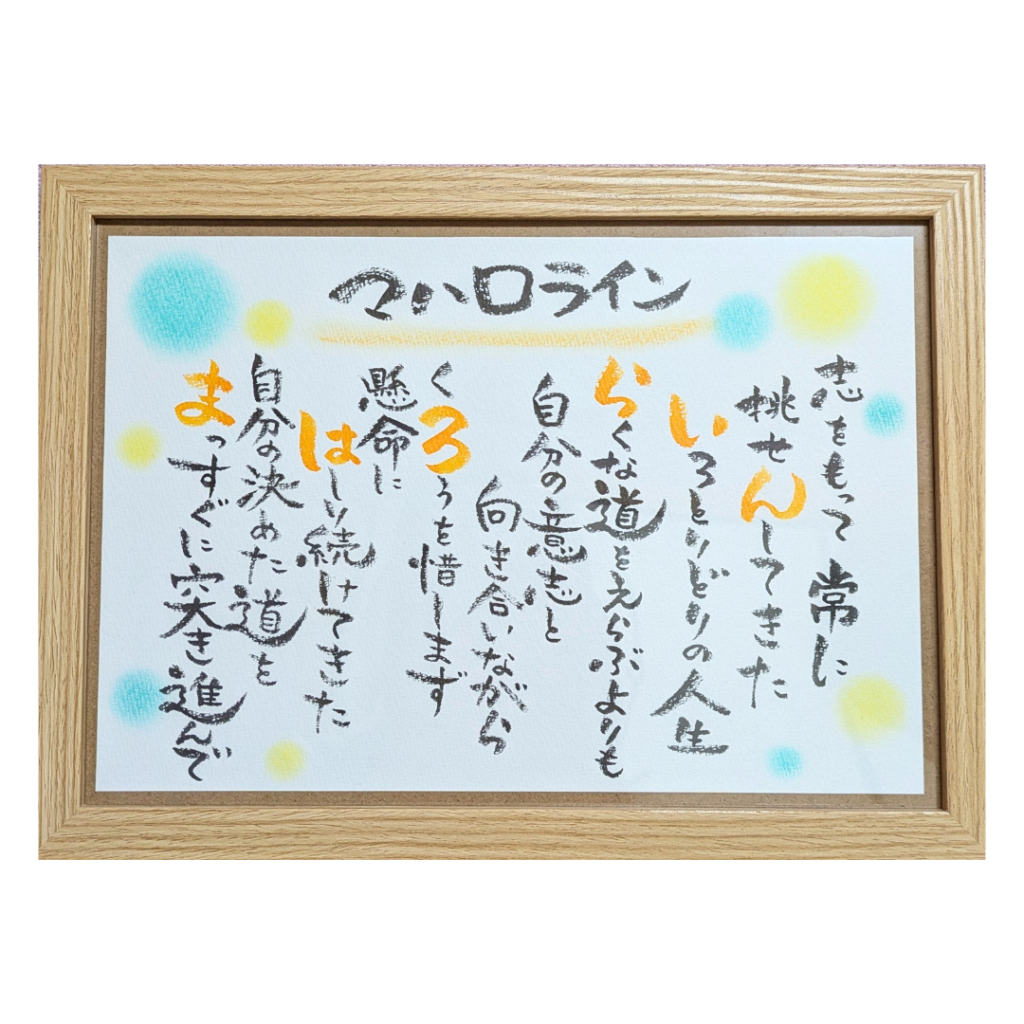 マハロライン
志をもって 常に
挑せんしてきた
いろとりどりの人生
らくな道をえらぶよりも
自分の意志と
向き合いながら
くろうを惜しまず
懸命に
はしり続けてきた
自分の決めた道を
まっすぐに突き進んで